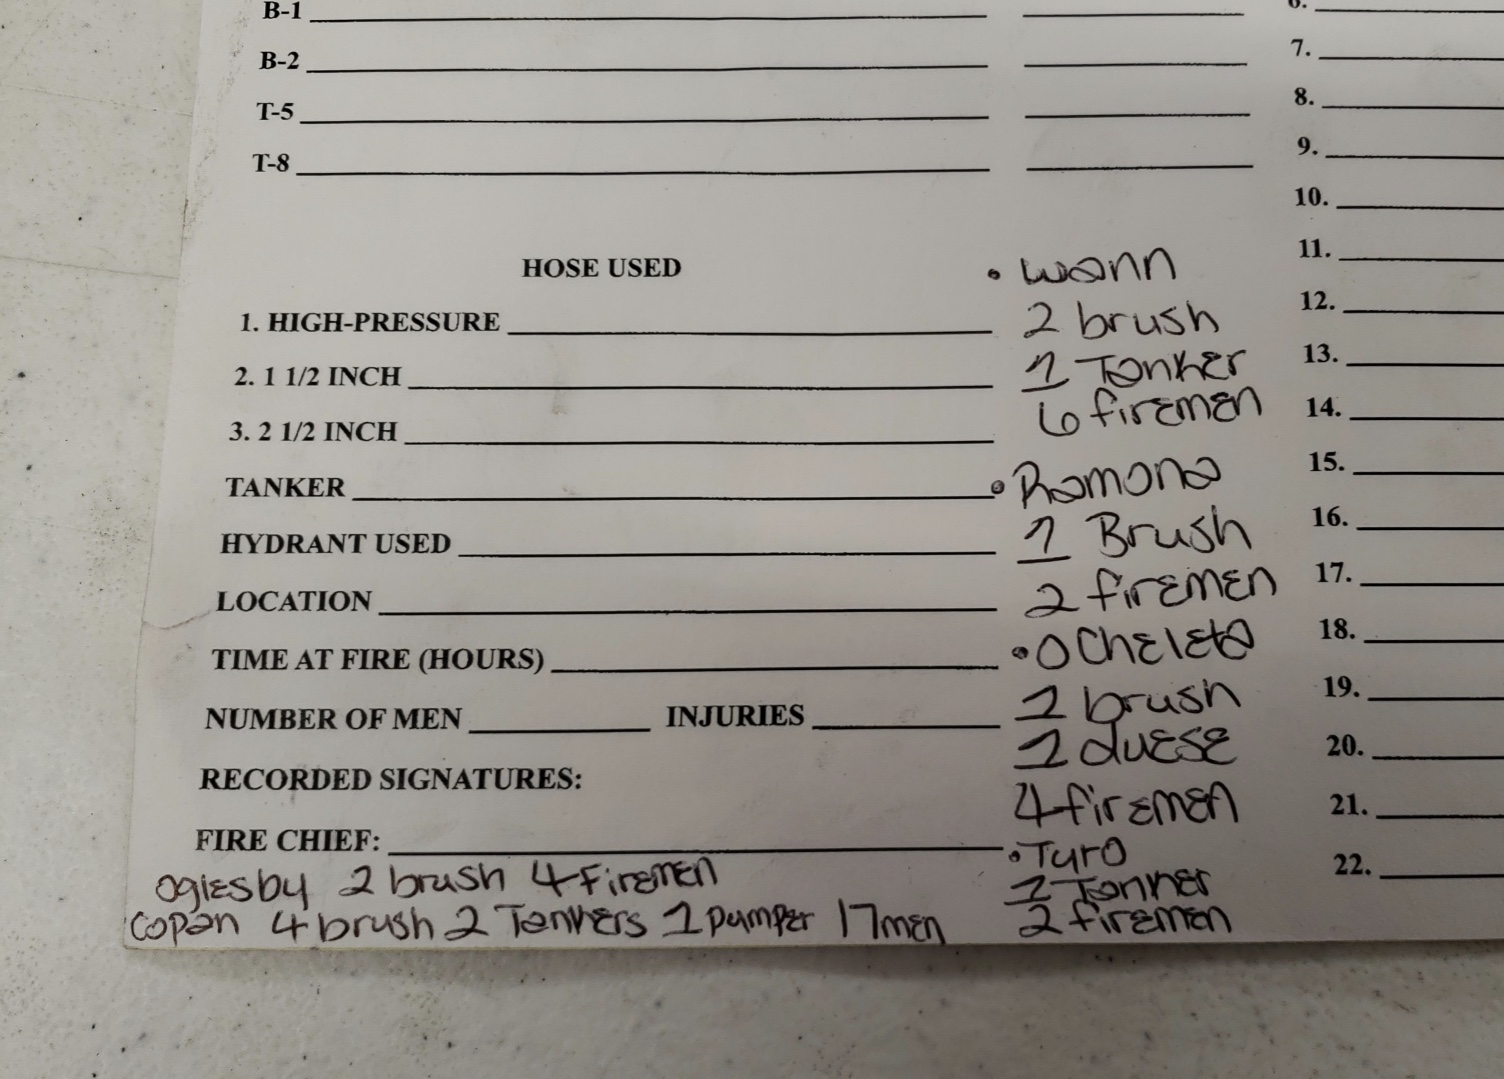 B-1
B-2
T-5
T-8
HOSE USED
1. HIGH-PRESSURE
2. 1 1/2 INCH
3. 2 1/2 INCH
TANKER
HYDRANT USED
LOCATION
TIME AT FIRE (HOURS)
NUMBER OF MEN INJURIES
RECORDED SIGNATURES:
FIRE CHIEF:
Oglesby 2 brush 4 Firemen
Copan 4 brush 2 Tankers 1 pumper 17 men
• wann
2 brush
1 Tanker
6 firemen
• Ramona
1 Brush
2 firemen
• Ocheleta
1 brush
1 duese
4 firemen
• Tyro
1 Tanker
2 firemen
6.
7.
8.
9.
10.
11.
12.
13.
14.
15.
16.
17.
18.
19.
20.
21.
22.